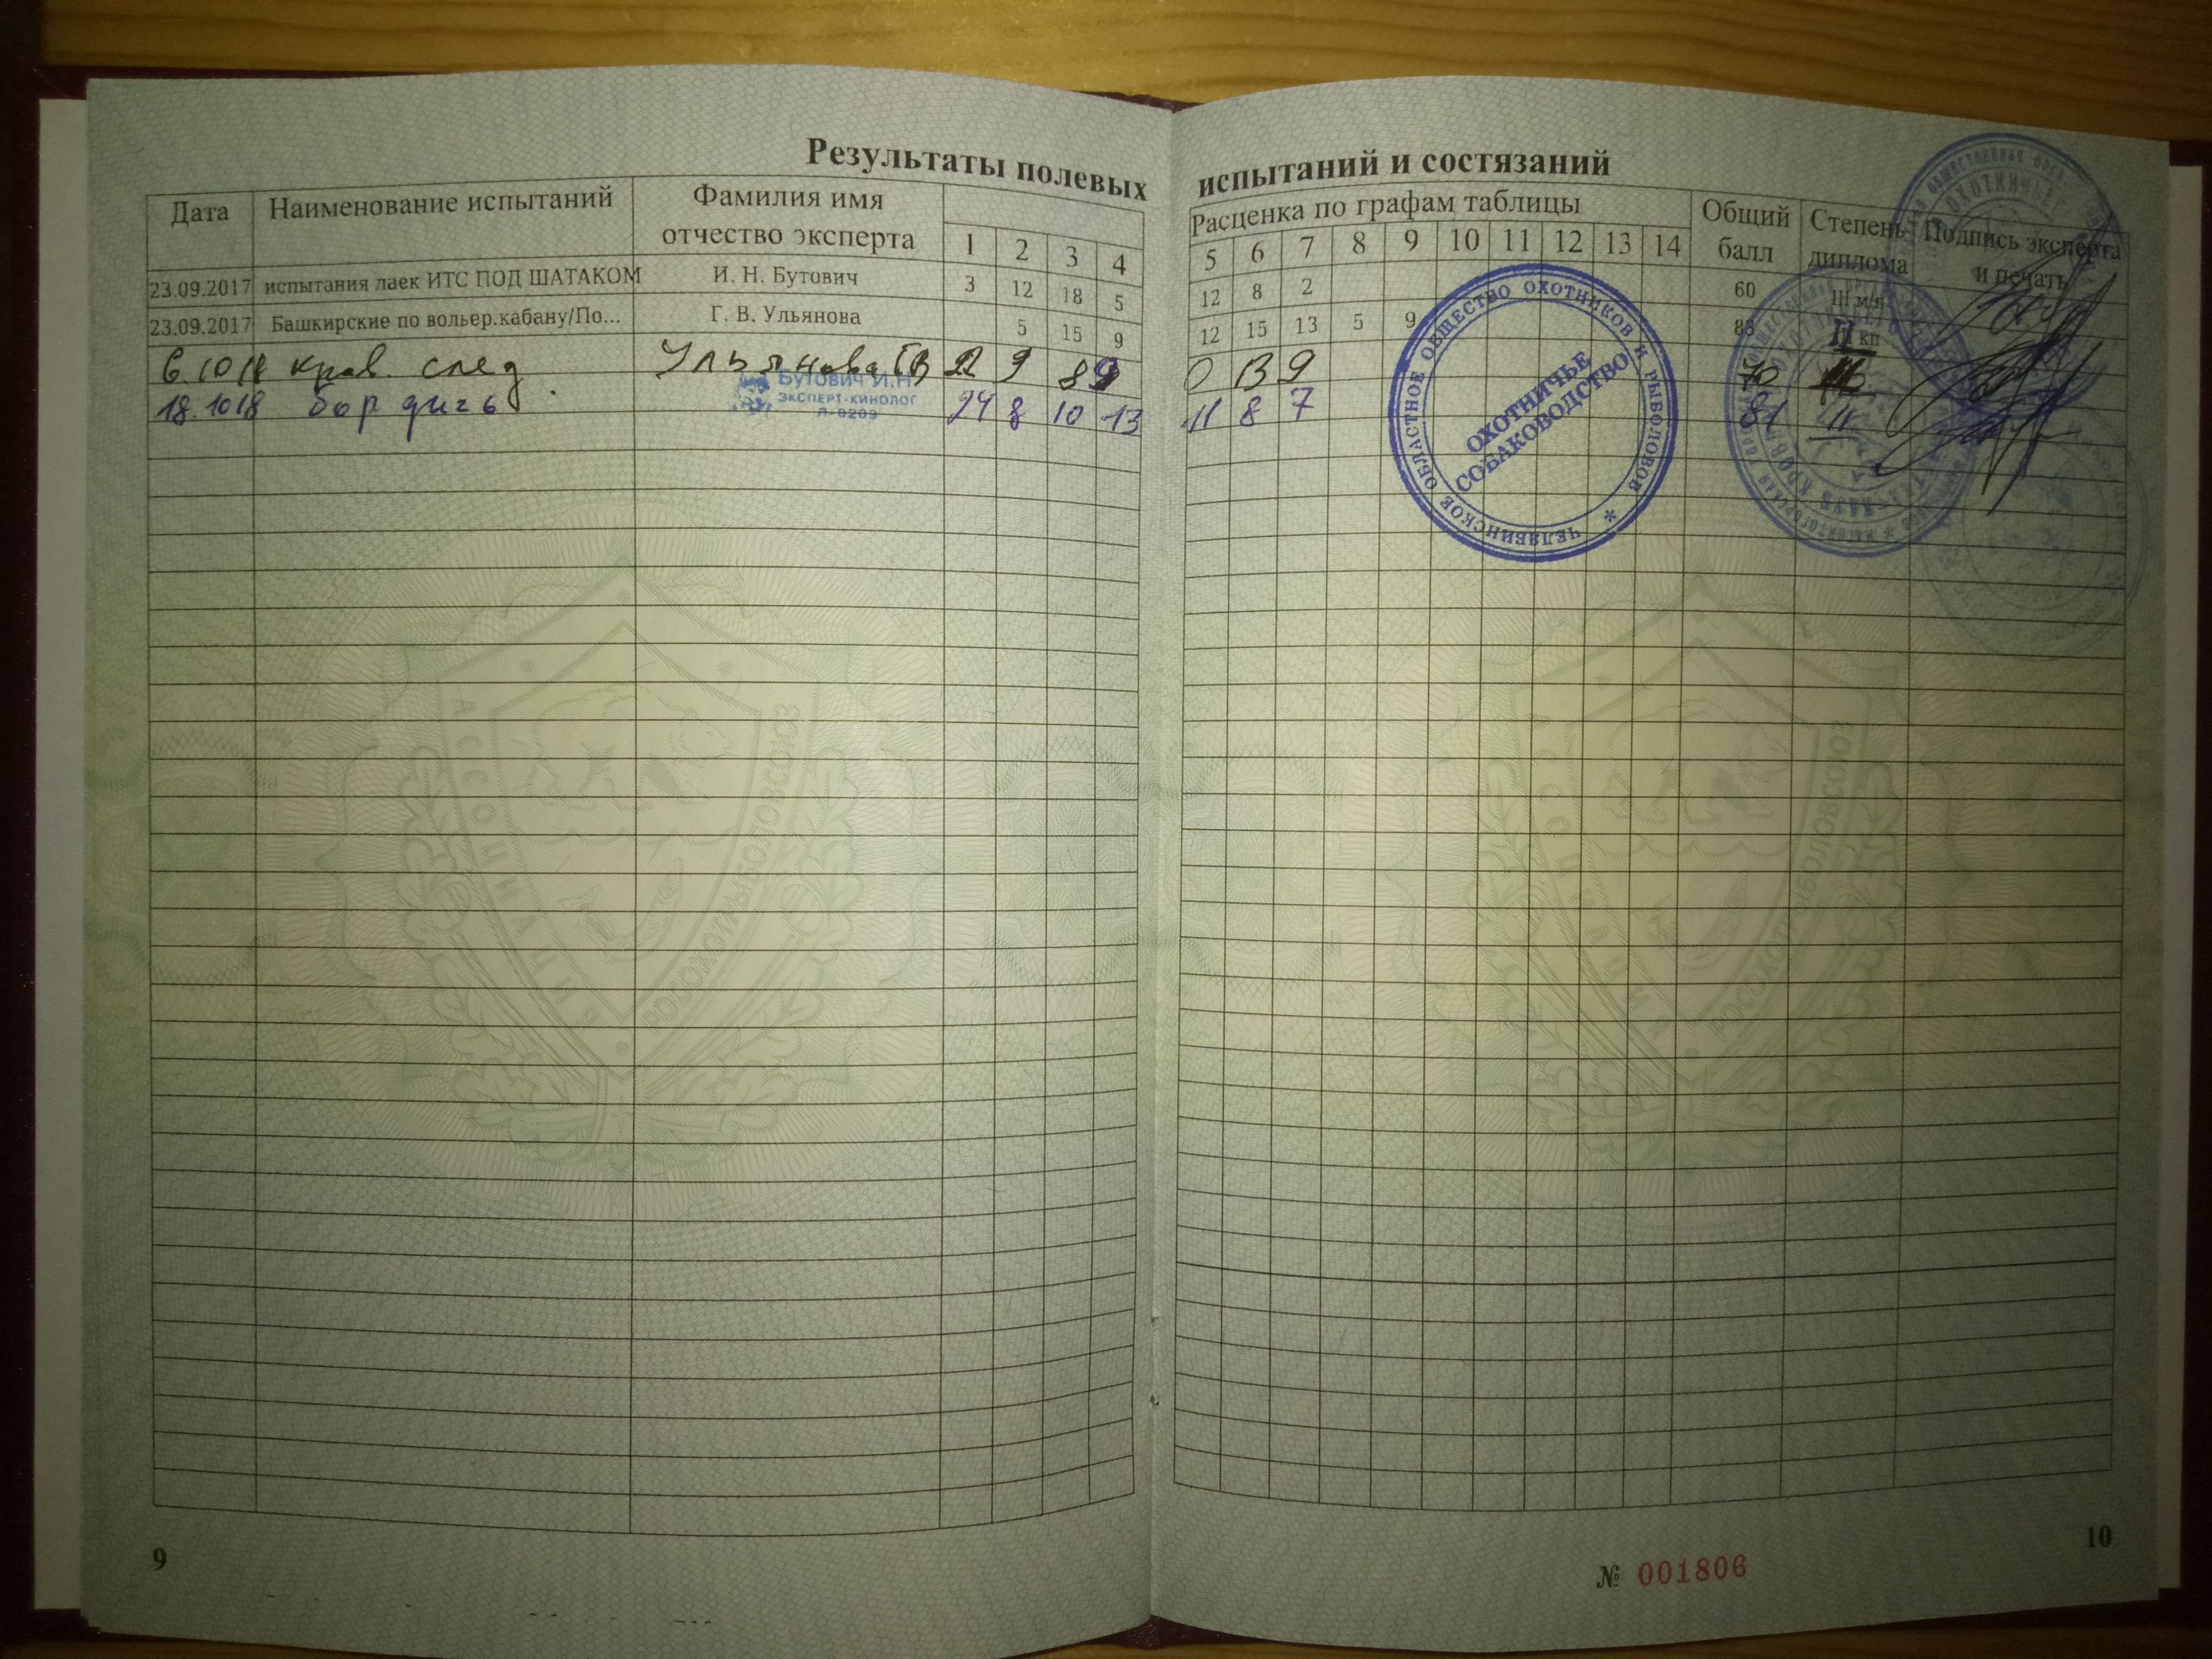 Результаты полевых испытаний и состязаний
Дата Наименование испытаний Фамилия имя отчество эксперта 1 2 3 4 Расценка по графам таблицы 5 6 7 8 9 10 11 12 13 14 Общий балл Степень диплома Подпись эксперта и печать
23.09.2017 испытания лаек ИТС ПОД ШАТАКОМ И. Н. Бутович 3 12 18 5 12 8 2 60 III м/п
23.09.2017 Башкирские по вольер.кабану/По... Г. В. Ульянова 5 15 9 12 15 13 5 9 83 II кп
6.1018 кров. след Ульянова ГВ 22 9 8 9 0 13 9 70
18.1018 бор дичь 24 8 10 13 11 8 7 81 II
Бутович И.Н.
ЭКСПЕРТ-КИНОЛОГ
Л-0209
ЧЕЛЯБИНСКОЕ ОБЛАСТНОЕ ОБЩЕСТВО ОХОТНИКОВ И РЫБОЛОВОВ *
ОХОТНИЧЬЕ
СОБАКОВОДСТВО
9
10
№ 001806